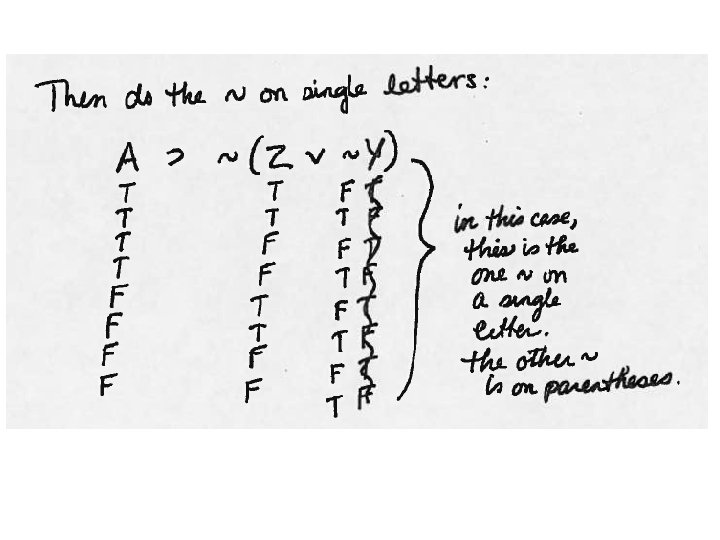 Then do the ~ on single letters:
A ⊃ ~(Z v ~Y)
T T F T
T T T F
T F F T
T F T F
F T F T
F T T F
F F F T
F F T F
in this case,
this is the
one ~ on
a single
letter.
the other ~
is on parentheses.